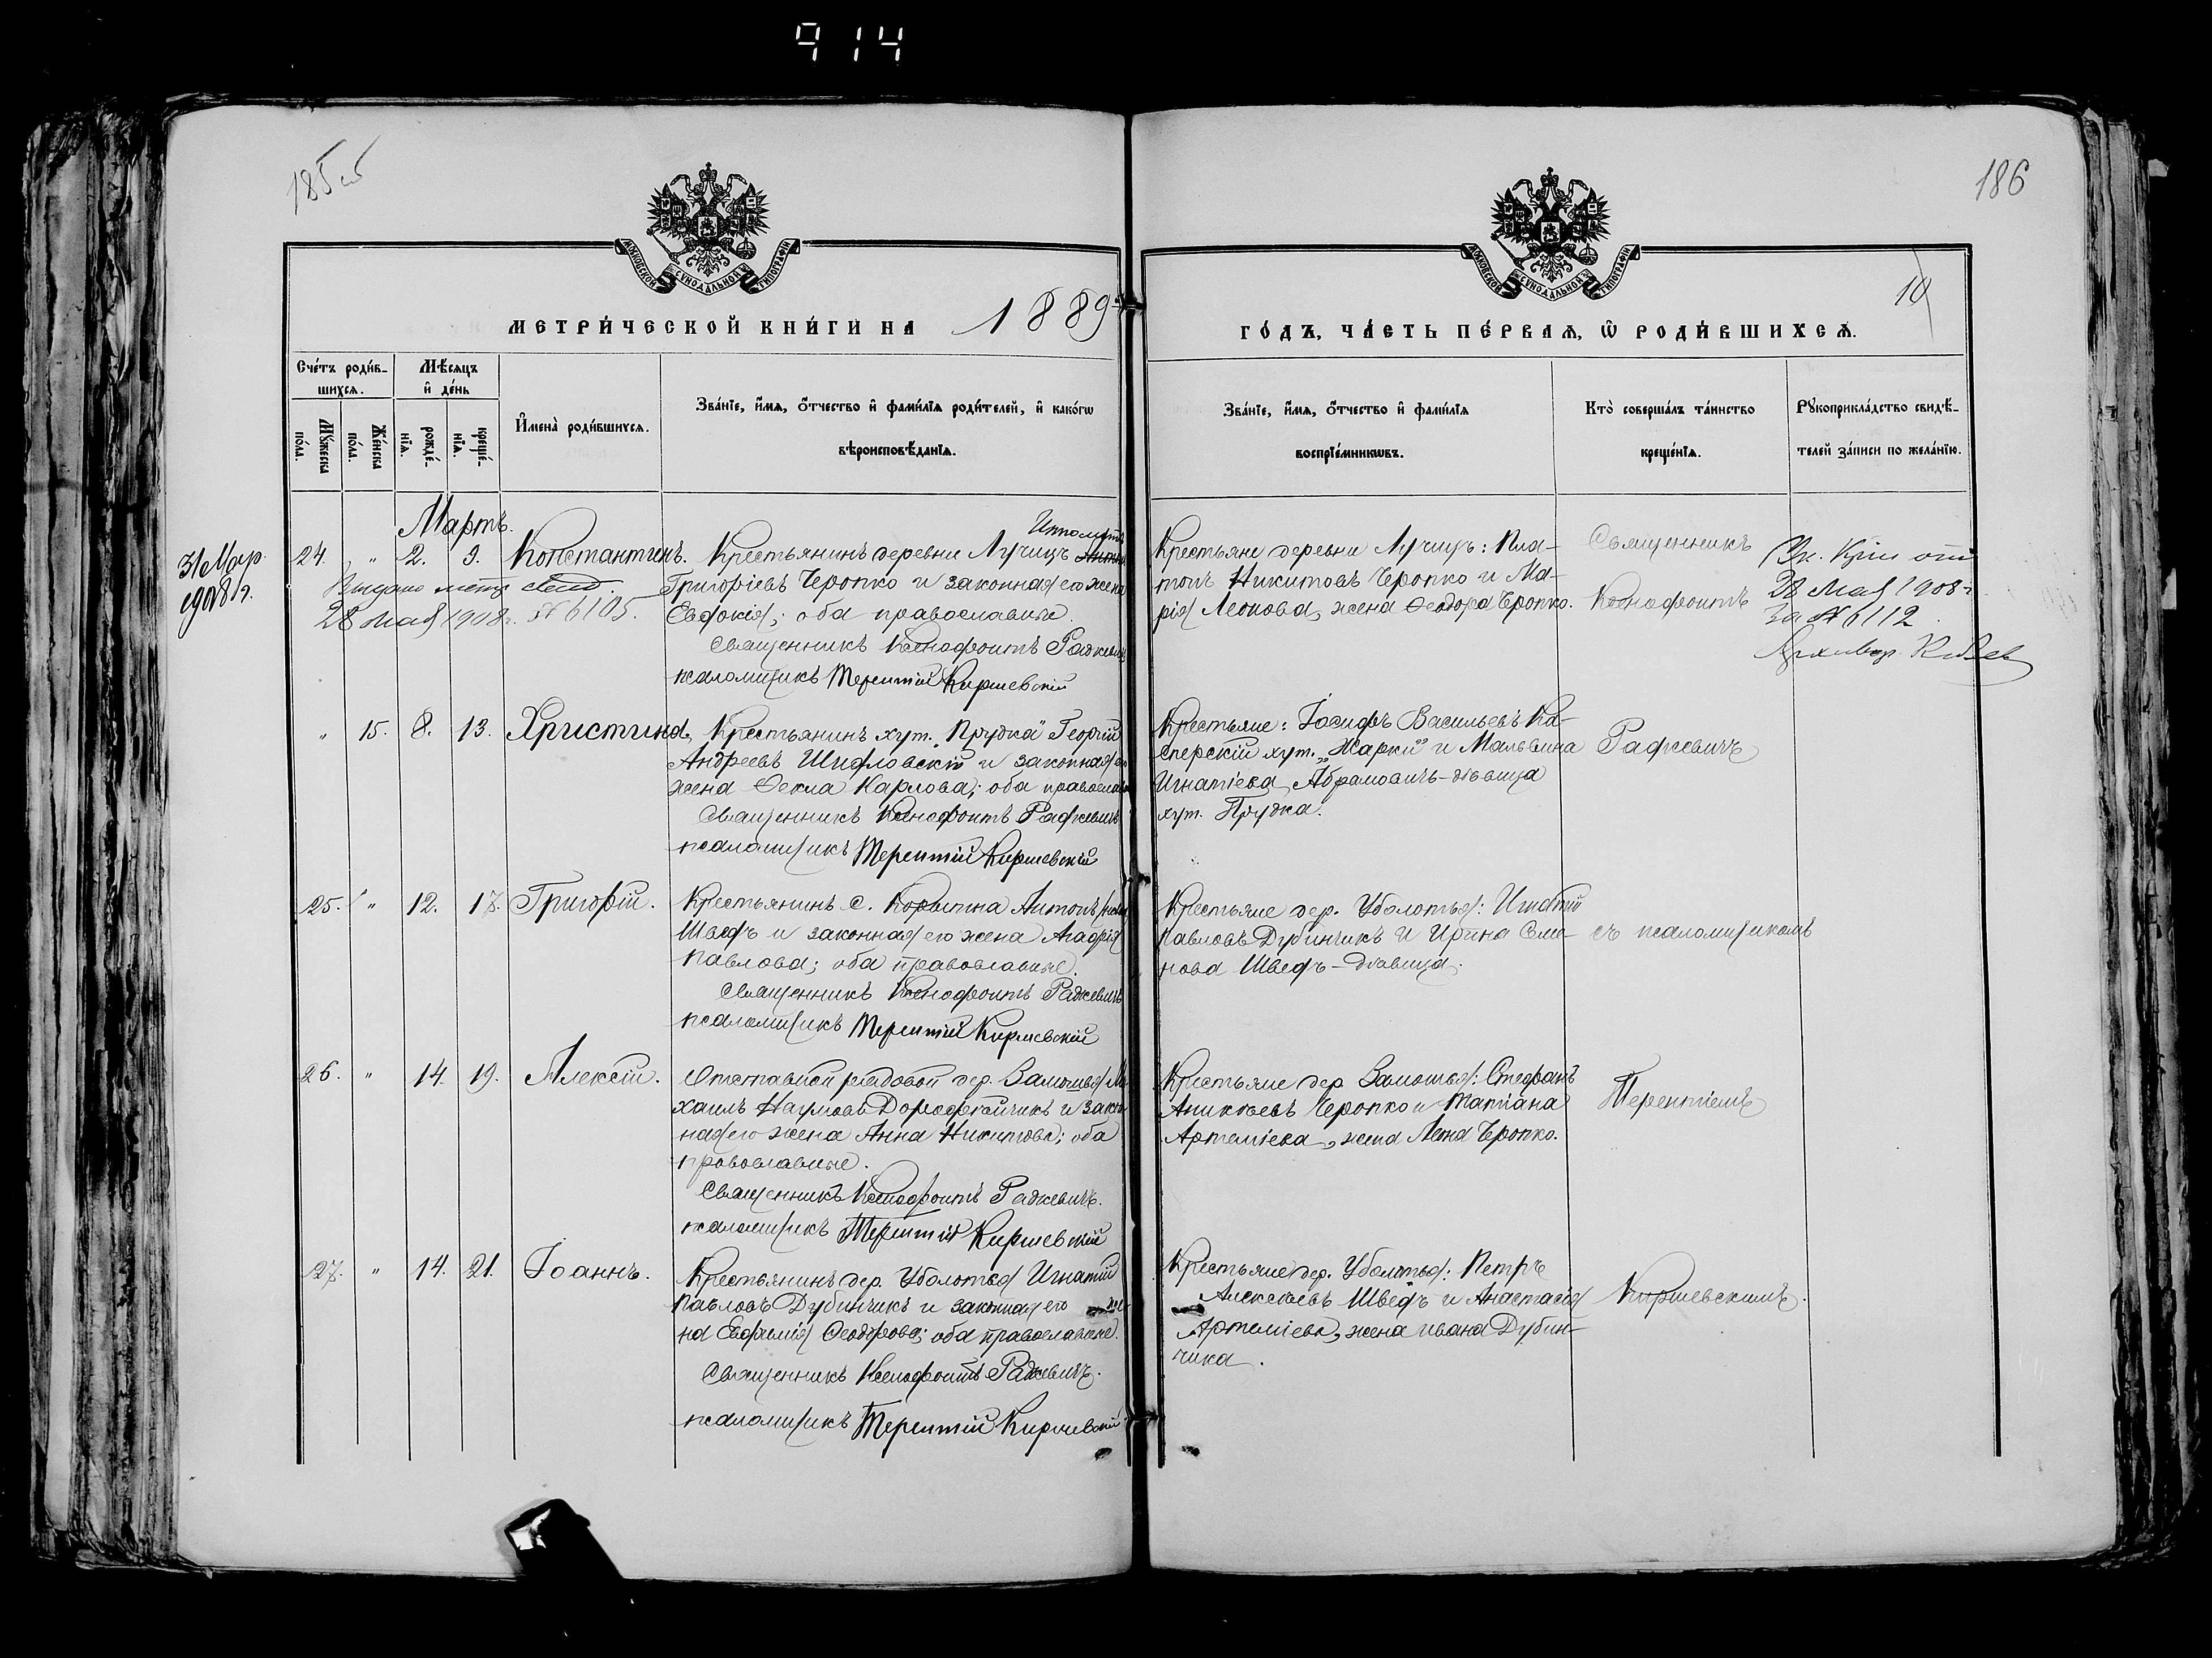 914
185об
186
МОСКОВСКОЙ СѴНОДАЛЬНОЙ ТИПОГРАФІИ
МОСКОВСКОЙ СѴНОДАЛЬНОЙ ТИПОГРАФІИ
10
МЕТРИ́ЧЕСКОЙ КНИ́ГИ НА 1889
ГО́ДЪ, ЧА́СТЬ ПЕ́РВАѦ, Ѡ РОДИ́ВШИХСѦ.
Сче́тъ роди́в-
шихсѧ.
Мѣ́сѧцъ
и҆ де́нь
Мꙋ́жеска
по́ла.
Же́нска
по́ла.
рожде́-
нїѧ.
креще́-
нїѧ.
И҆мена̀ роди́вшихсѧ.
Зва́нїе, и҆́мѧ, ѻ҆́тчество и҆ фами́лїѧ роди́телей, и҆ како́гѡ
вѣроисповѣ́данїѧ.
Зва́нїе, и҆́мѧ, ѻ҆́тчество и҆ фами́лїѧ
воспрїе́мникѡвъ.
Кто̀ соверша́лъ та́инство
креще́нїѧ.
Рꙋкоприкла́дство свидѣ́-
телей за́писи по жела́нїю.
Мартъ.
31 Мар
24. " 2. 3. Константинъ.
Выдано метр. свид.
28 мая 1908 г. № 6105.
Ипполитъ
Крестьянинъ деревни Лучицъ
Григоріевъ Черопко и законная его жена
Евдокія; оба православные.
Священникъ Ксенофонтъ Радкевичъ
псаломщикъ Терентій Киршевскій
Крестьяне деревни Лучицъ: Пла-
тонъ Никитовъ Черопко и Ма-
рія Леонова, жена Ѳеодора Черопко.
Священникъ
Ксенофонтъ
28 Мая 1908 г
за № 6112
" 15. 8. 13. Христина.
Крестьянинъ хут. „Прудка" Георгій
Андреевъ Шидловскій и законная его
жена Ѳекла Карлова; оба православ
Священникъ Ксенофонтъ Радкевичъ
псаломщикъ Терентій Киршевскій
Крестьяне: Іосифъ Васильевъ Ка-
сперскій хут. „Жарки" и Мальвина
Игнатіева Абрамовичъ-дѣвица
хут. Прудка.
Радкевичъ
25. " 12. 17. Григорій.
Крестьянинъ с. Антонъ
Шведъ и законная его жена Агафія
Павлова; оба православные.
Священникъ Ксенофонтъ Радкевичъ
псаломщикъ Терентій Киршевскій
Крестьяне дер. Уболотья: Игнатій
Павловъ Дубинчикъ и Ирина Сме-
нова Шведъ-дѣвица.
съ псаломщикомъ
26. " 14. 19. Алексій.
Отставной рядовой дер. Замошья Ми
хаилъ Наумовъ Дорофейчикъ и закон
ная его жена Анна Никитова; оба
православные.
Священникъ Ксенофонтъ Радкевичъ.
псаломщикъ Терентій Киршевскій
Крестьяне дер. Замошья: Стефанъ
Аникѣевъ Черопко и Татіана
Артеміева, жена Леона Черопко.
Терентіемъ
27. " 14. 21. Іоаннъ.
Крестьянинъ дер. Уболотья Игнатій
Павловъ Дубинчикъ и законная его же-
на Евфимія Ѳеодорова; оба православные.
Священникъ Ксенофонтъ Радкевичъ.
псаломщикъ Терентій Киршевскій
Крестьяне дер. Уболотья: Петръ
Алексѣевъ Шведъ и Анастасія
Артеміева, жена Ивана Дубин-
чика.
Киршевскимъ.